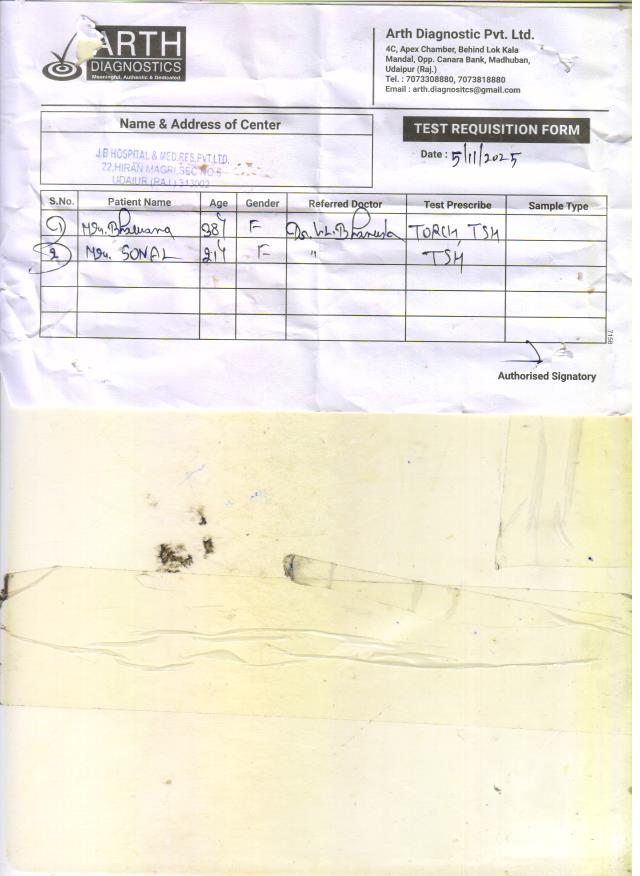 ARTH
DIAGNOSTICS
Meaningful, Authentic & Dedicated
Arth Diagnostic Pvt. Ltd.
4C, Apex Chamber, Behind Lok Kala
Mandal, Opp. Canara Bank, Madhuban,
Udaipur (Raj.)
Tel. : 7073308880, 7073818880
Email : arth.diagnositcs@gmail.com
Name & Address of Center
J.B HOSPITAL & MED.RES.PVT.LTD.
22,HIRAN MAGRI,SEC NO.5
UDAIUR (RAJ.) 313002
TEST REQUISITION FORM
Date : 5/11/2025
S.No. Patient Name Age Gender Referred Doctor Test Prescribe Sample Type
1) Mrs. Bhawana 28y F Dr. TORCH, TSH
2 Mrs. SONAL 21y F " TSH
7158
Authorised Signatory